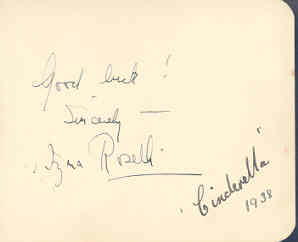 Good luck!
Sincerely —
Roselli
"Cinderella"
1938